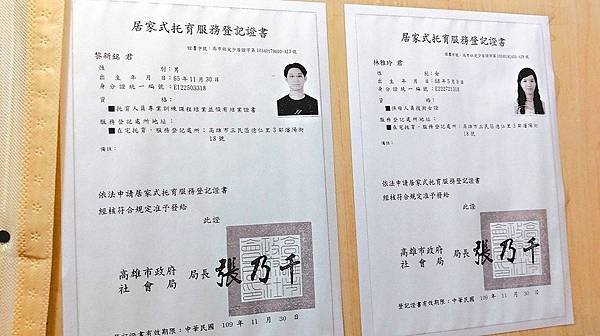 居家式托育服務登記證書
黎新銘 君
性 別:男
出 生 年 月 日:65年11月30日
身分證統一編號:E122503318
資 格:
■托育人員專業訓練課程結業並領有結業證書
服務登記處所地址:
■在宅托育,服務登記處所:高雄市三民區德仁里3鄰瀋陽街
18號
備註:
依法申請居家式托育服務登記證書
經核符合規定准予發給
此證
高雄市政府
社會局 局長 張乃千
登記證書有效期限:中華民國 109 年 11 月 30 日
居家式托育服務登記證書
林雅玲 君
性 別:女
出 生 年 月 日:68年5月8日
身分證統一編號:E222721318
資 格:
■保母人員技術士證
服務登記處所地址:
■在宅托育,服務登記處所:高雄市三民區德仁里3鄰瀋陽街
18號
備註:
依法申請居家式托育服務登記證書
經核符合規定准予發給
此證
高雄市政府
社會局 局長 張乃千
登記證書有效期限:中華民國 109 年 11 月 30 日